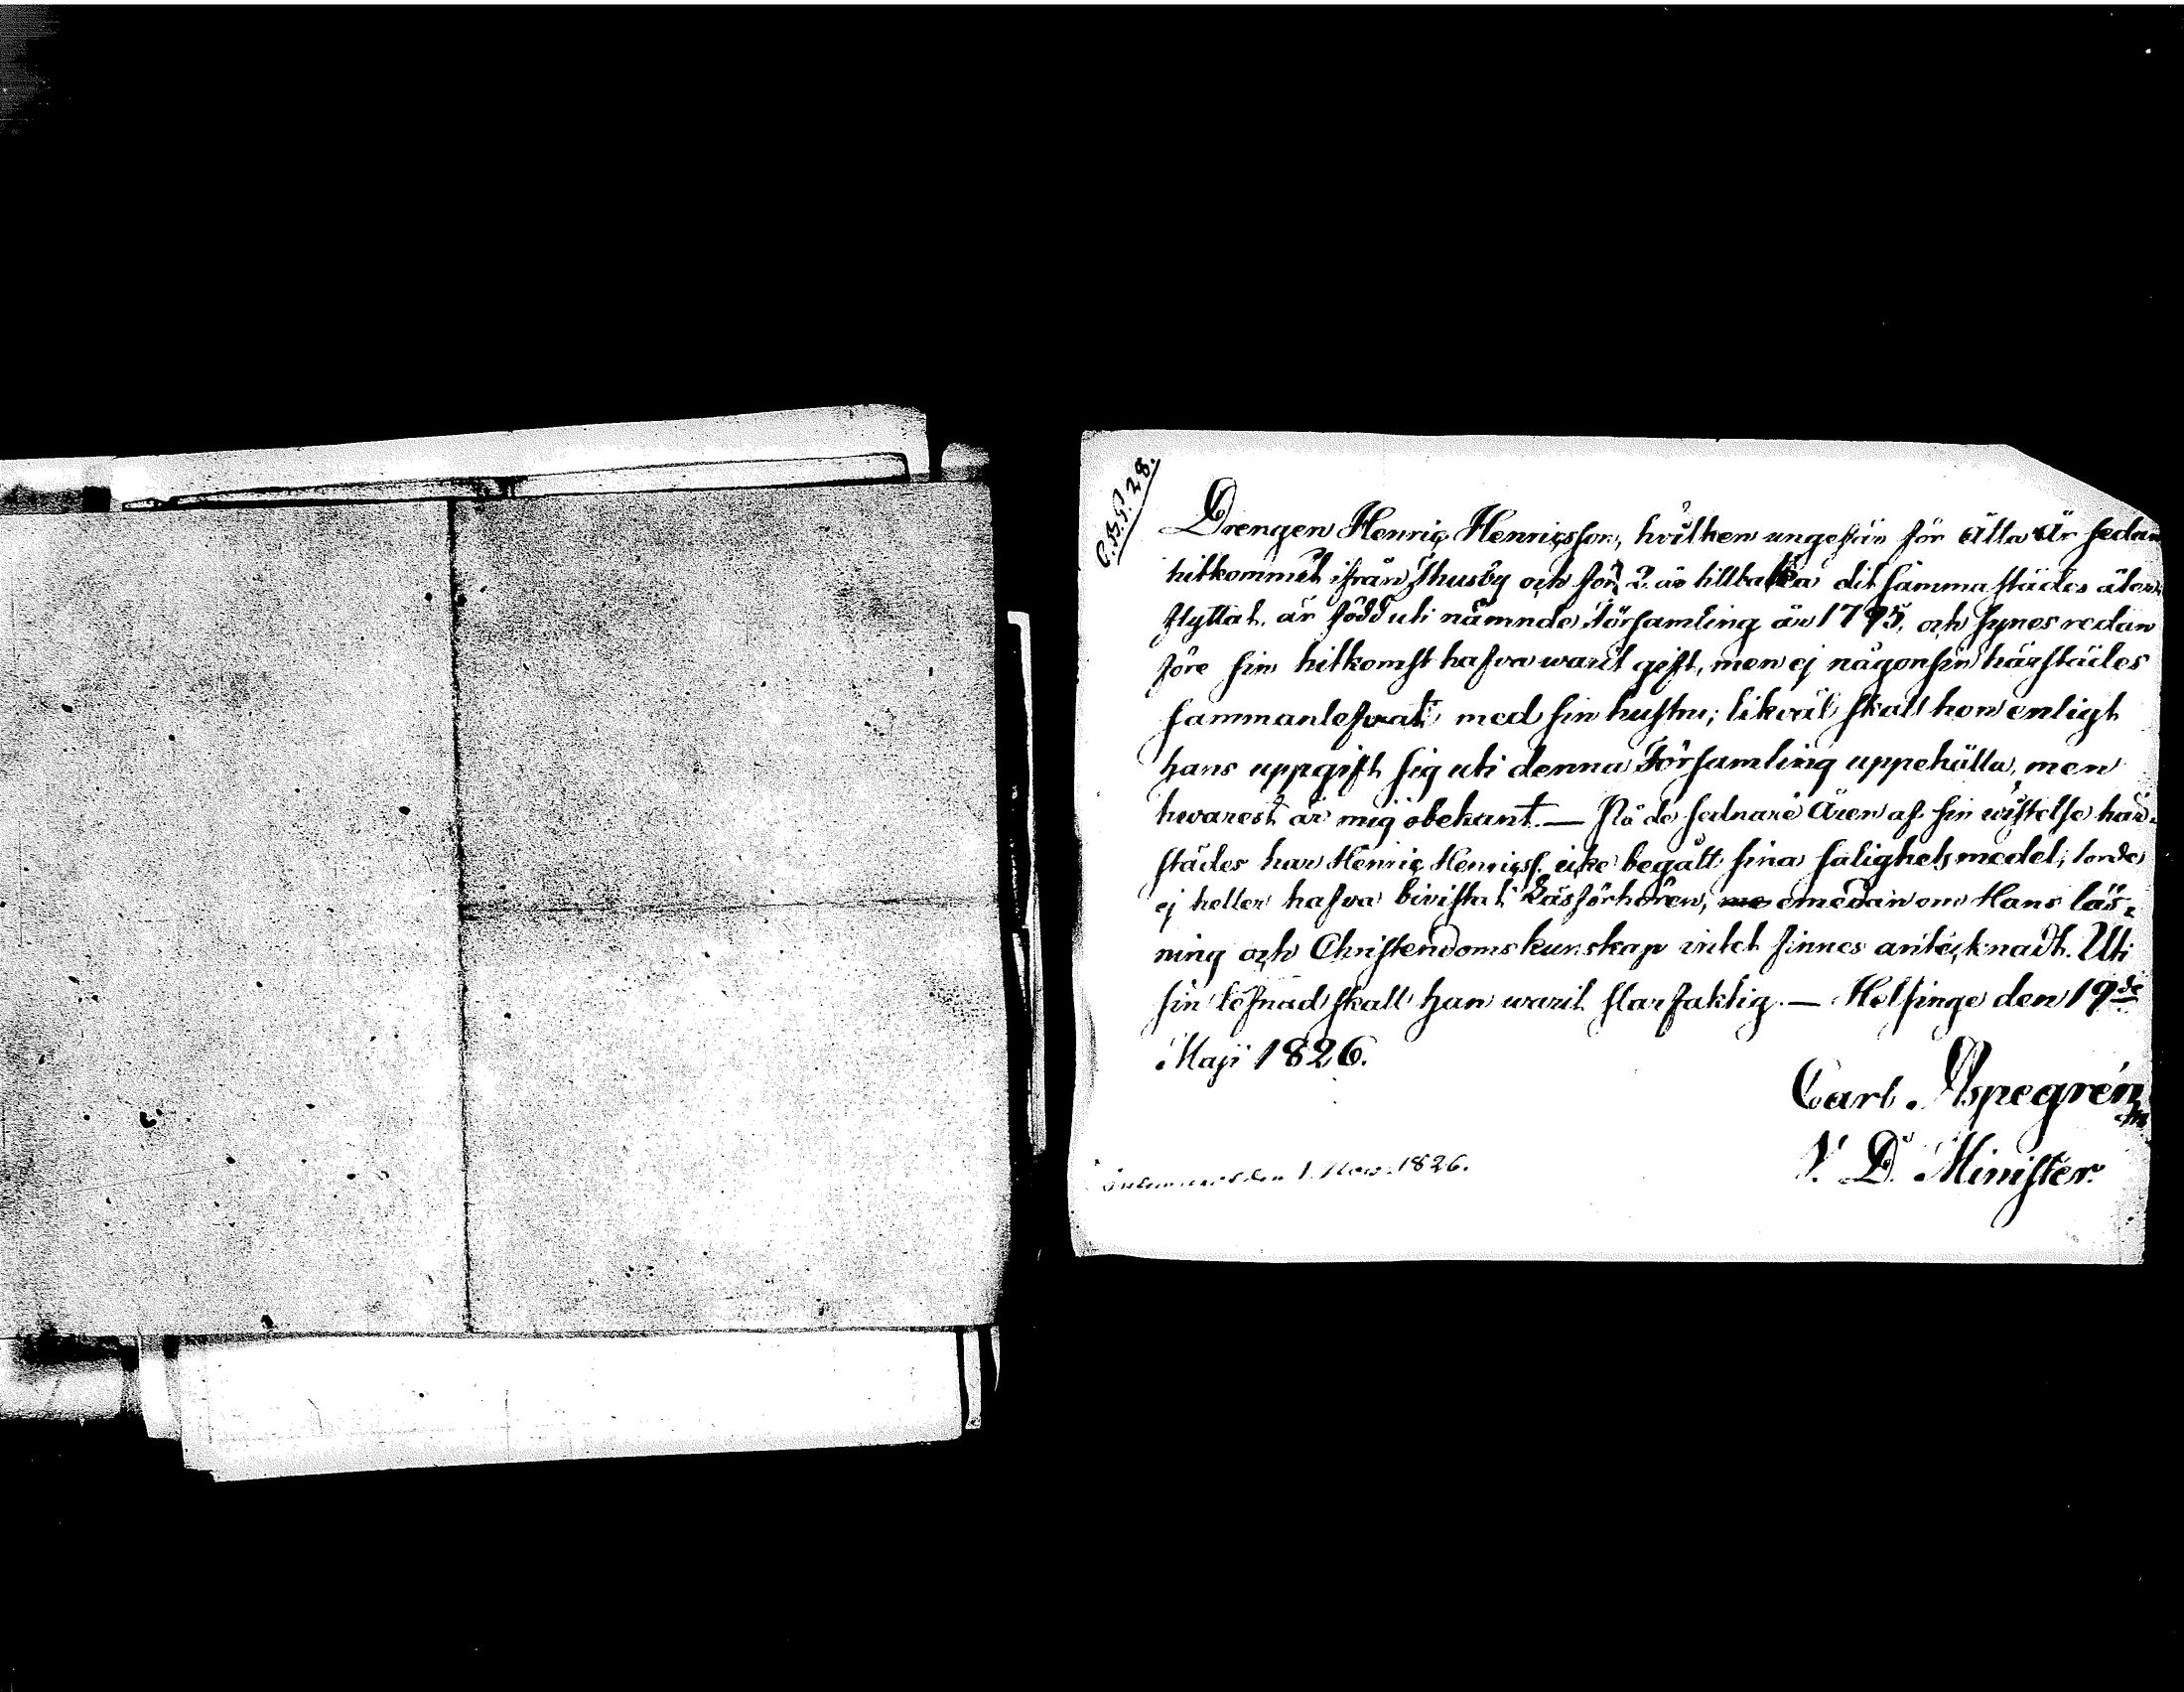 C.B.P. 28.
Drengen Henric Henricsson, hvilken ungefär för åtta År sedan
hitkommit ifrån Thusby och för 2. år tillbaka dit sammastädes åter
flyttat, är född uti nämnde Församling år 1795, och synes redan
före sin hitkomst hafva warit gift, men ej någonsin härstädes
sammanlefvat med sin hustru; likväl skall hon enligt
hans uppgift sig uti denna Församling uppehålla, men
hwarest är mig obekant. — På de sednare Åren af sin wistelse här-
städes har Henric Henricss. icke begått sina salighetsmedel; torde
ej heller hafva bivistat Läsförhören, emedan om Hans läs-
ning och Christendomskunskap intet finnes antecknadt. Uti
sin lefnad skall han warit slarfaktig. — Helsinge den 19de
Maji 1826.
Carl Aspegrén
V. D. Minister.
den 1. Nov. 1826.